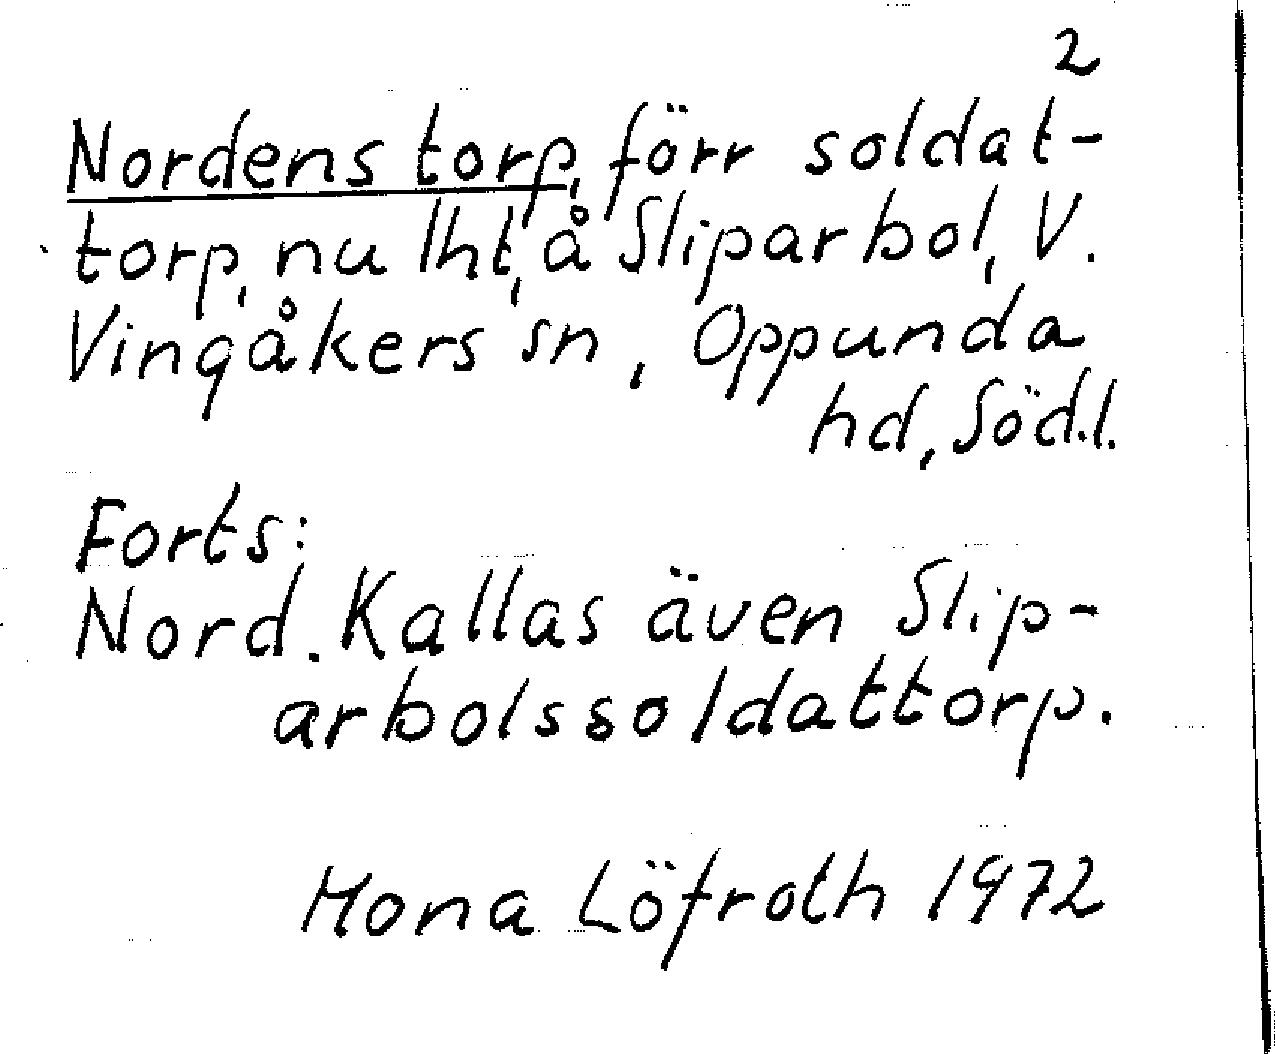 2
Nordens torp, förr soldat-
torp, nu lht, å Sliparbol, V.
Vingåkers sn, Oppunda
hd, Södl.
Forts:
Nord. Kallas även Slip-
arbolssoldattorp.
Mona Löfroth 1972